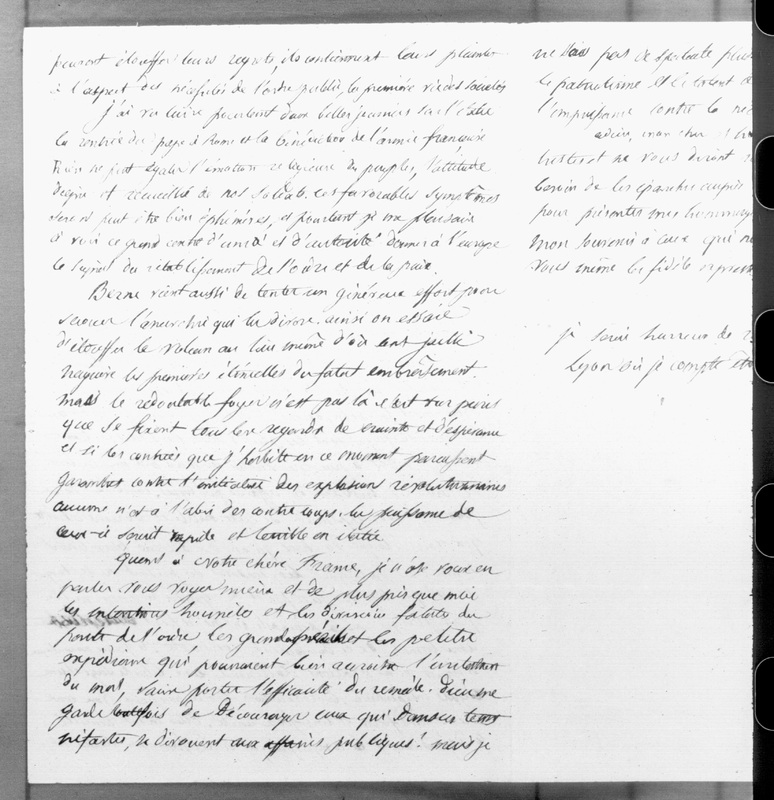 peuvent étouffer leurs regrets, ils contiennent leurs plaintes
à l'aspect des nécessités de l'ordre public, la première vie des sociétés
J'ai vu luire pourtant deux belles journées sur l'Italie
la rentrée du pape à Rome et la bénédiction de l'armée française
Rien ne peut égaler l'émotion religieuse du peuple, l'attitude
digne et recueillie de nos soldats. Ces favorables symptômes
seront peut être bien éphémères, et pourtant je me plaisais
à voir ce grand centre d'unité et d'autorité donner à l'europe
le signal du rétablissement de l'ordre et de la paix.
Berne vient aussi de tenter un généreux effort pour
secouer l'anarchie qui la dévore. ainsi on essaie
d'étouffer le volcan au lieu même d'où ont jailli
naguère les premières étincelles du fatal embrâsement.
mais le redoutable foyer n'est pas là c'est sur paris
que se fixent tous les regards de crainte et d'espérance
et si les contrées que j'habite en ce moment paraissent
garanties contre l'initiative des explosions révolutionnaires
aucune n'est à l'abri des contre coups. la puissance de
ceux-ci serait rapide et terrible en italie
quant à votre chère France, je n'ose vous en
parler vous voyez mieux et de plus près que moi
les intentions honnêtes et les divisions fatales du
parti de l'ordre les grands périls et les petits
expédients qui pourraient bien accroître l'intensité
du mal, sans porter l'efficacité du remède. Dieu me
garde toutefois de décourager ceux qui dans ces temps
néfastes, se dévouent aux affaires publiques! mais je
ne vois pas de spectacle plus
le patriotisme et le talent
l'empirisme contre la
adieu, mon cher
et ne vous diront
besoin de les épancher auprès
pour présenter mes hommages
mon souvenir à ceux qui
vous même la fidèle expression
je serai heureux de
Lyon où je compte